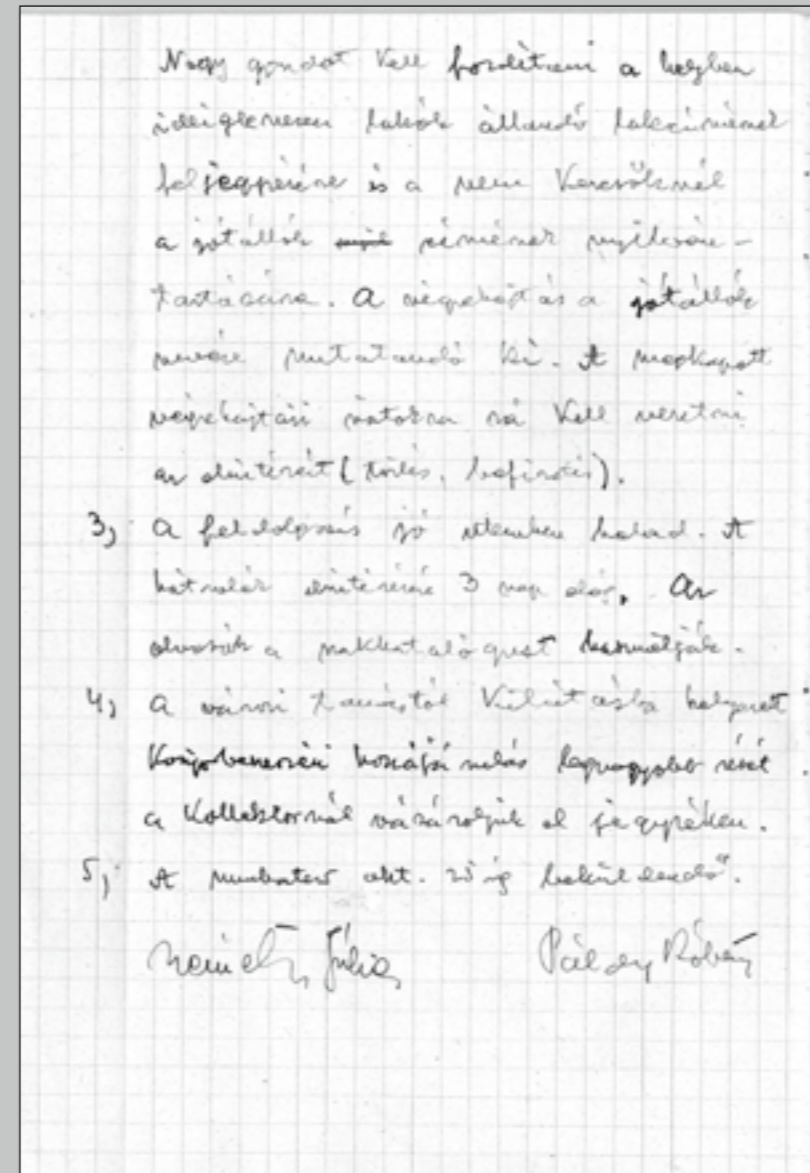 Nagy gondot kell fordítani a helyben
ideiglenesen lakók állandó lakcímének
feljegyzésére is a nem keresőknél
a jótállók címének nyilván-
tartására. A végrehajtás a jótállók
nevére mutatandó ki. A megkapott
végrehajtási iratokra rá kell vezetni
az elintézést (törlés, befizetés).
3) A feldolgozás jó ütemben halad. A
hátralék elintézésére 3 nap elég. Az
olvasók a szakkatalógust használják.
4) A városi tanácstól kilátásba helyezett
Könyvbeszerzési hozzájárulás legnagyobb részét
a Kollektornál vásároljuk el jegyzéken.
5) A munkaterv okt. 25 ig beküldendő.
Németh Júlia Páldy Róbert